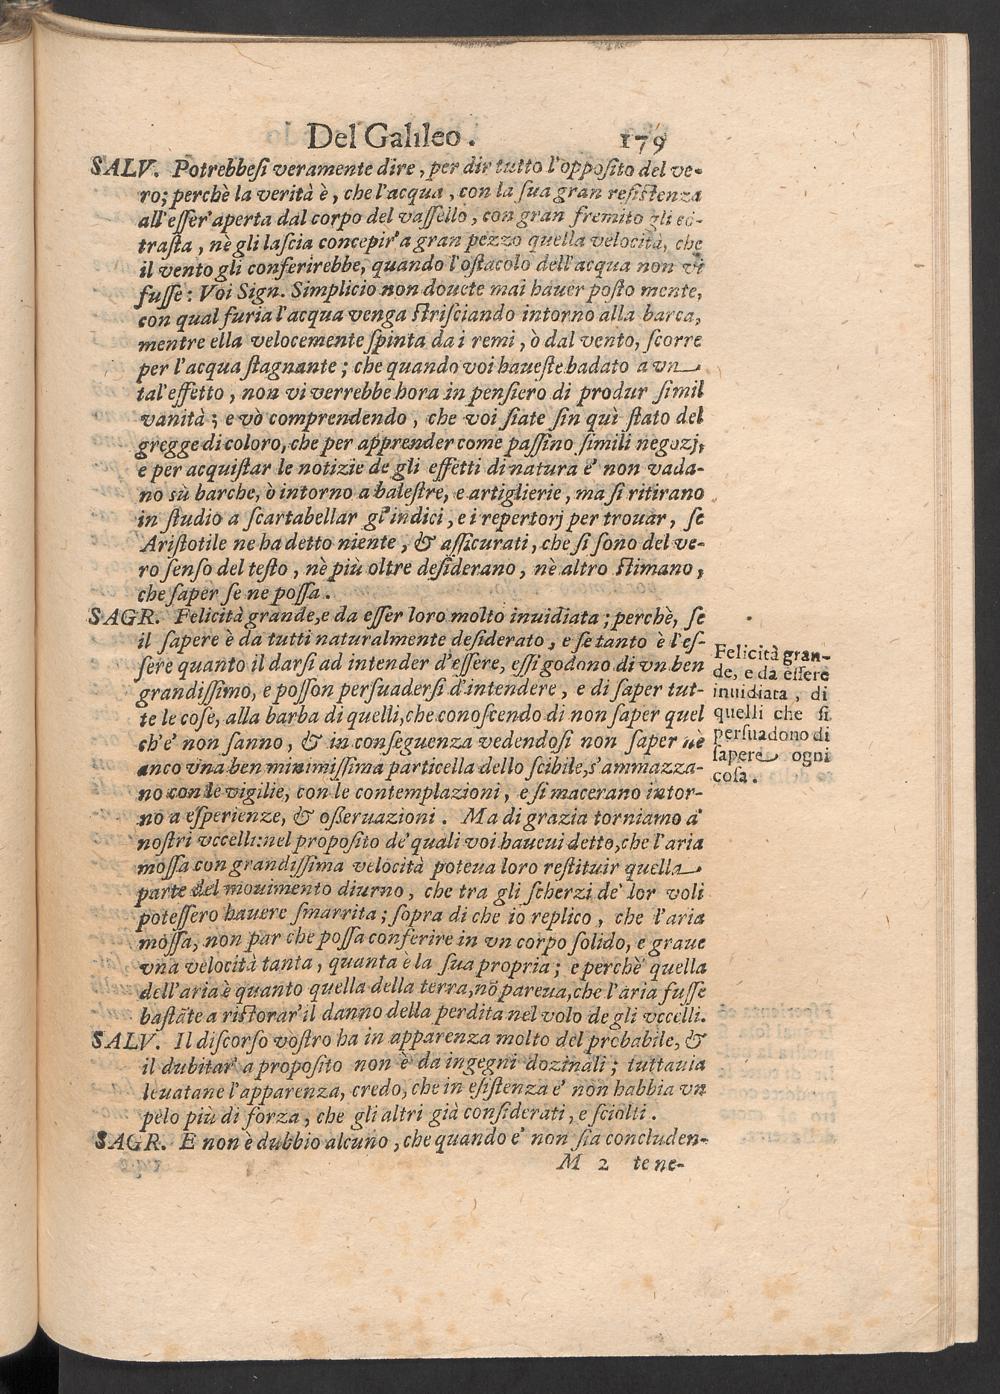 Del Galileo. 179
SALV. Potrebbesi veramente dire, per dir tutto l'opposito del ve-
ro; perchè la verità è, che l'acqua, con la sua gran resistenza
all'esser'aperta dal corpo del vassello, con gran fremito gli cō-
trasta, nè gli lascia concepir'a gran pezzo quella velocità, che
il vento gli conferirebbe, quando l'ostacolo dell'acqua non vi
fusse: Voi Sign. Simplicio non douete mai hauer posto mente,
con qual furia l'acqua venga strisciando intorno alla barca,
mentre ella velocemente spinta da i remi, ò dal vento, scorre
per l'acqua stagnante; che quando voi haueste badato a vn
tal'effetto, non vi verrebbe hora in pensiero di produr simil
vanità; e vò comprendendo, che voi siate sin quì stato del
gregge di coloro, che per apprender come passino simili negozj,
e per acquistar le notizie de gli effetti di natura e' non vada-
no sù barche, ò intorno a balestre, e artiglierie, ma si ritirano
in studio a scartabellar gl'indici, e i repertorj per trouar, se
Aristotile ne ha detto niente, & assicurati, che si sono del ve-
ro senso del testo, nè più oltre desiderano, nè altro stimano,
che saper se ne possa.
SAGR. Felicità grande, e da esser loro molto inuidiata; perchè, se
il sapere è da tutti naturalmente desiderato, e se tanto è l'es-
sere quanto il darsi ad intender d'essere, essi godono di vn ben
grandissimo, e posson persuadersi d'intendere, e di saper tut-
te le cose, alla barba di quelli, che conoscendo di non saper quel
ch'e' non sanno, & in conseguenza vedendosi non saper nè
anco vna ben minimissima particella dello scibile, s'ammazza-
no con le vigilie, con le contemplazioni, e si macerano intor-
no a esperienze, & osseruazioni. Ma di grazia torniamo a'
nostri vccelli: nel proposito de' quali voi haueui detto, che l'aria
mossa con grandissima velocità poteua loro restituir quella
parte del mouimento diurno, che tra gli scherzi de' lor voli
potessero hauere smarrita; sopra di che io replico, che l'aria
mossa, non par che possa conferire in vn corpo solido, e graue
vna velocità tanta, quanta è la sua propria; e perchè quella
dell'aria è quanto quella della terra, nō pareua, che l'aria fusse
bastāte a ristorar'il danno della perdita nel volo de gli vccelli.
SALV. Il discorso vostro ha in apparenza molto del probabile, &
il dubitar'a proposito non è da ingegni dozinali; tuttauia
leuatane l'apparenza, credo, che in esistenza e' non habbia vn
pelo più di forza, che gli altri già considerati, e sciolti.
SAGR. E non è dubbio alcuno, che quando e' non sia concluden-
M 2 te ne-
Felicità gran-
de, e da essere
inuidiata, di
quelli che si
persuadono di
sapere ogni
cosa.